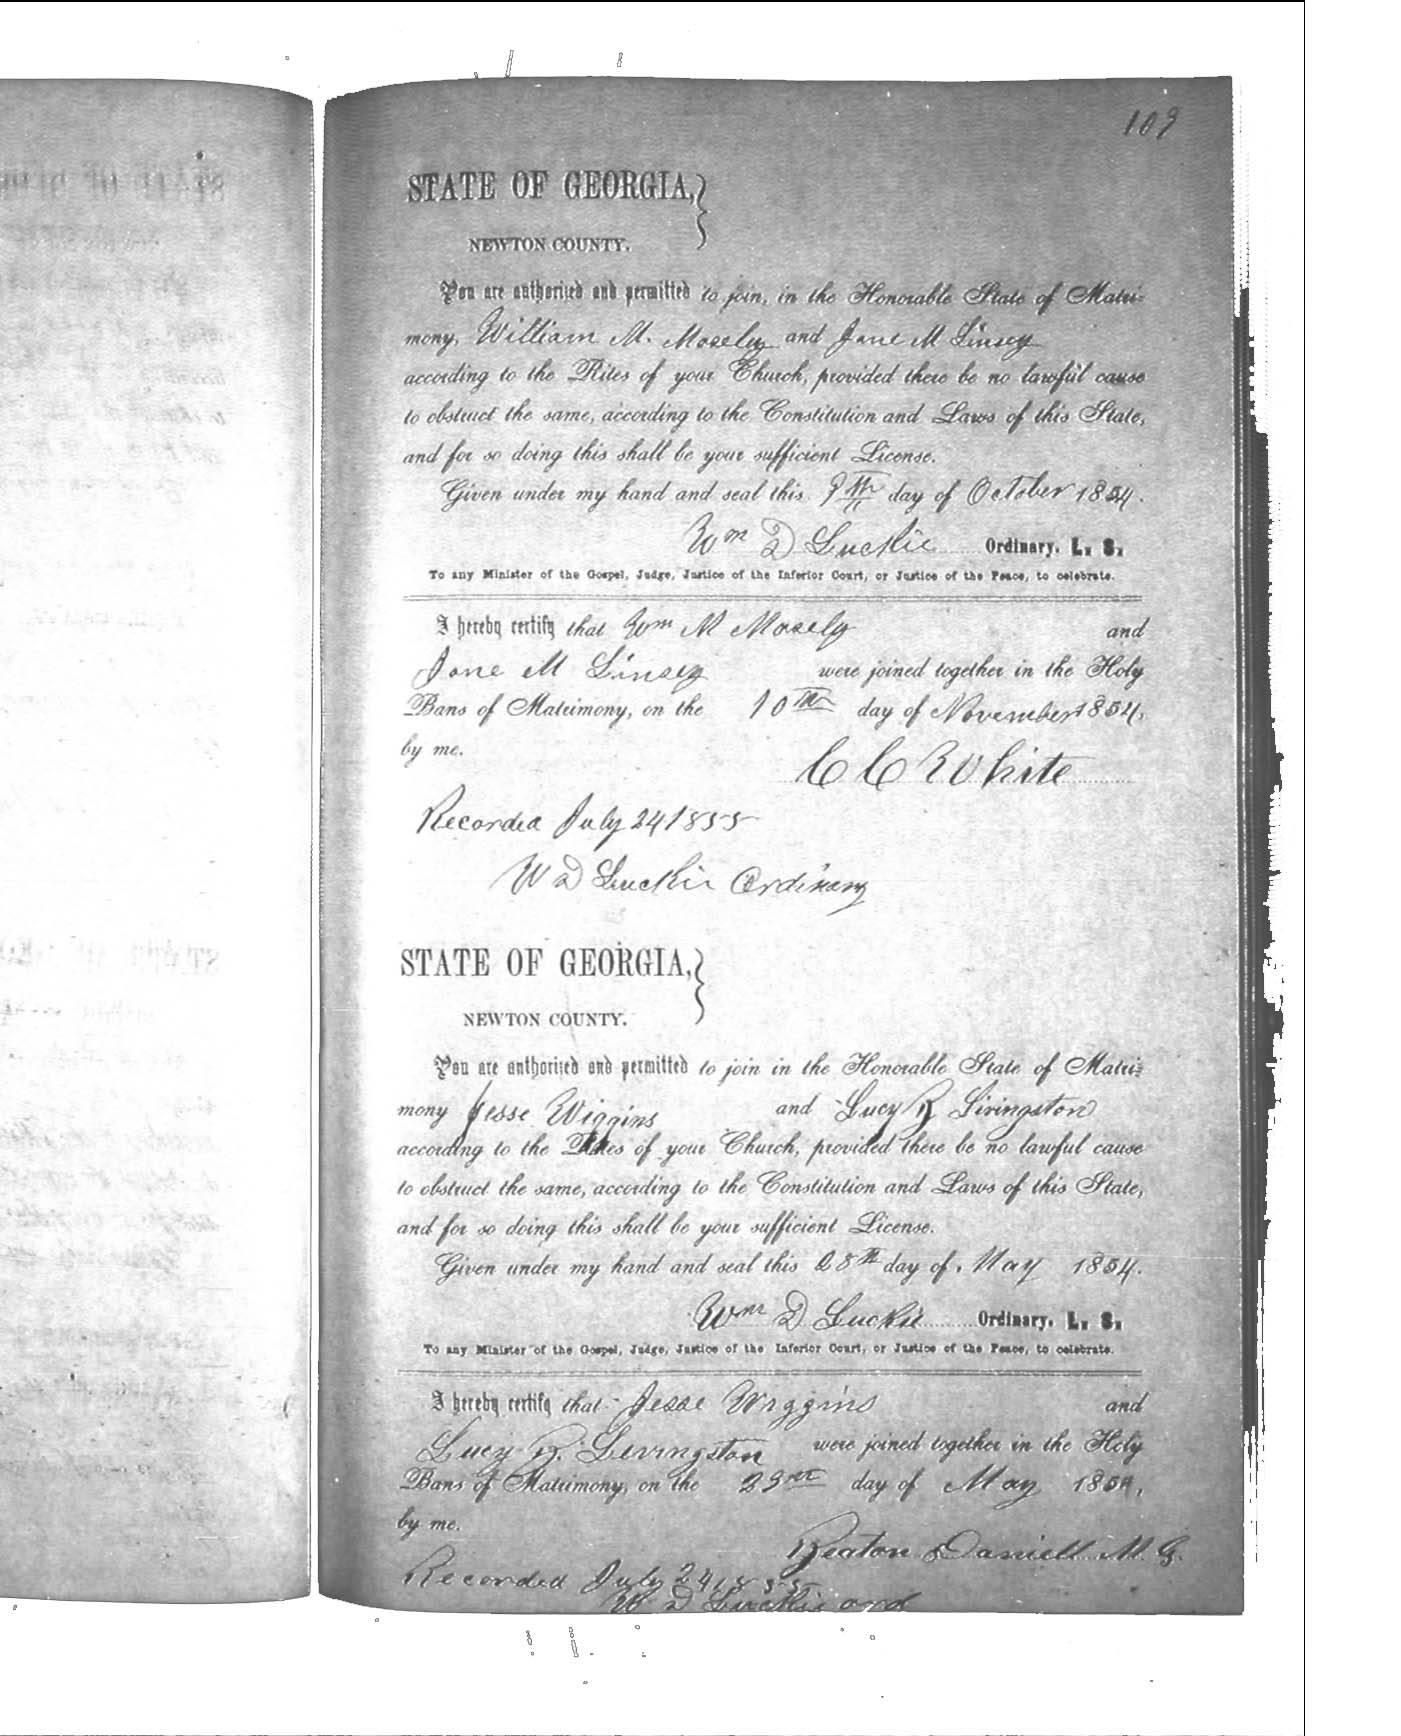 109
STATE OF GEORGIA,
NEWTON COUNTY.
You are authorized and permitted to join, in the Honorable State of Matri-
mony, William M. Mosely and Jane M Linsey
according to the Rites of your Church, provided there be no lawful cause
to obstruct the same, according to the Constitution and Laws of this State,
and for so doing this shall be your sufficient License.
Given under my hand and seal this 9th day of October 1854.
Wm D Luckie Ordinary. L. S.
To any Minister of the Gospel, Judge, Justice of the Inferior Court, or Justice of the Peace, to celebrate.
I hereby certify that Wm M Mosely and
Jane M Linsey were joined together in the Holy
Bans of Matrimony, on the 10th day of November 1854,
by me.
C C White
Recorded July 24 1855
W D Luckie Ordinary
STATE OF GEORGIA,
NEWTON COUNTY.
You are authorized and permitted to join in the Honorable State of Matri-
mony Jesse Wiggins and Lucy R Livingston
according to the Rites of your Church, provided there be no lawful cause
to obstruct the same, according to the Constitution and Laws of this State,
and for so doing this shall be your sufficient License.
Given under my hand and seal this 28th day of May 1854.
Wm D Luckie Ordinary. L. S.
To any Minister of the Gospel, Judge, Justice of the Inferior Court, or Justice of the Peace, to celebrate.
I hereby certify that Jesse Wiggins and
Lucy R. Levingston were joined together in the Holy
Bans of Matrimony, on the day of May 1854,
by me.
Beaton Daniell M. G.
Recorded July 24 1855
W D Luckie ord